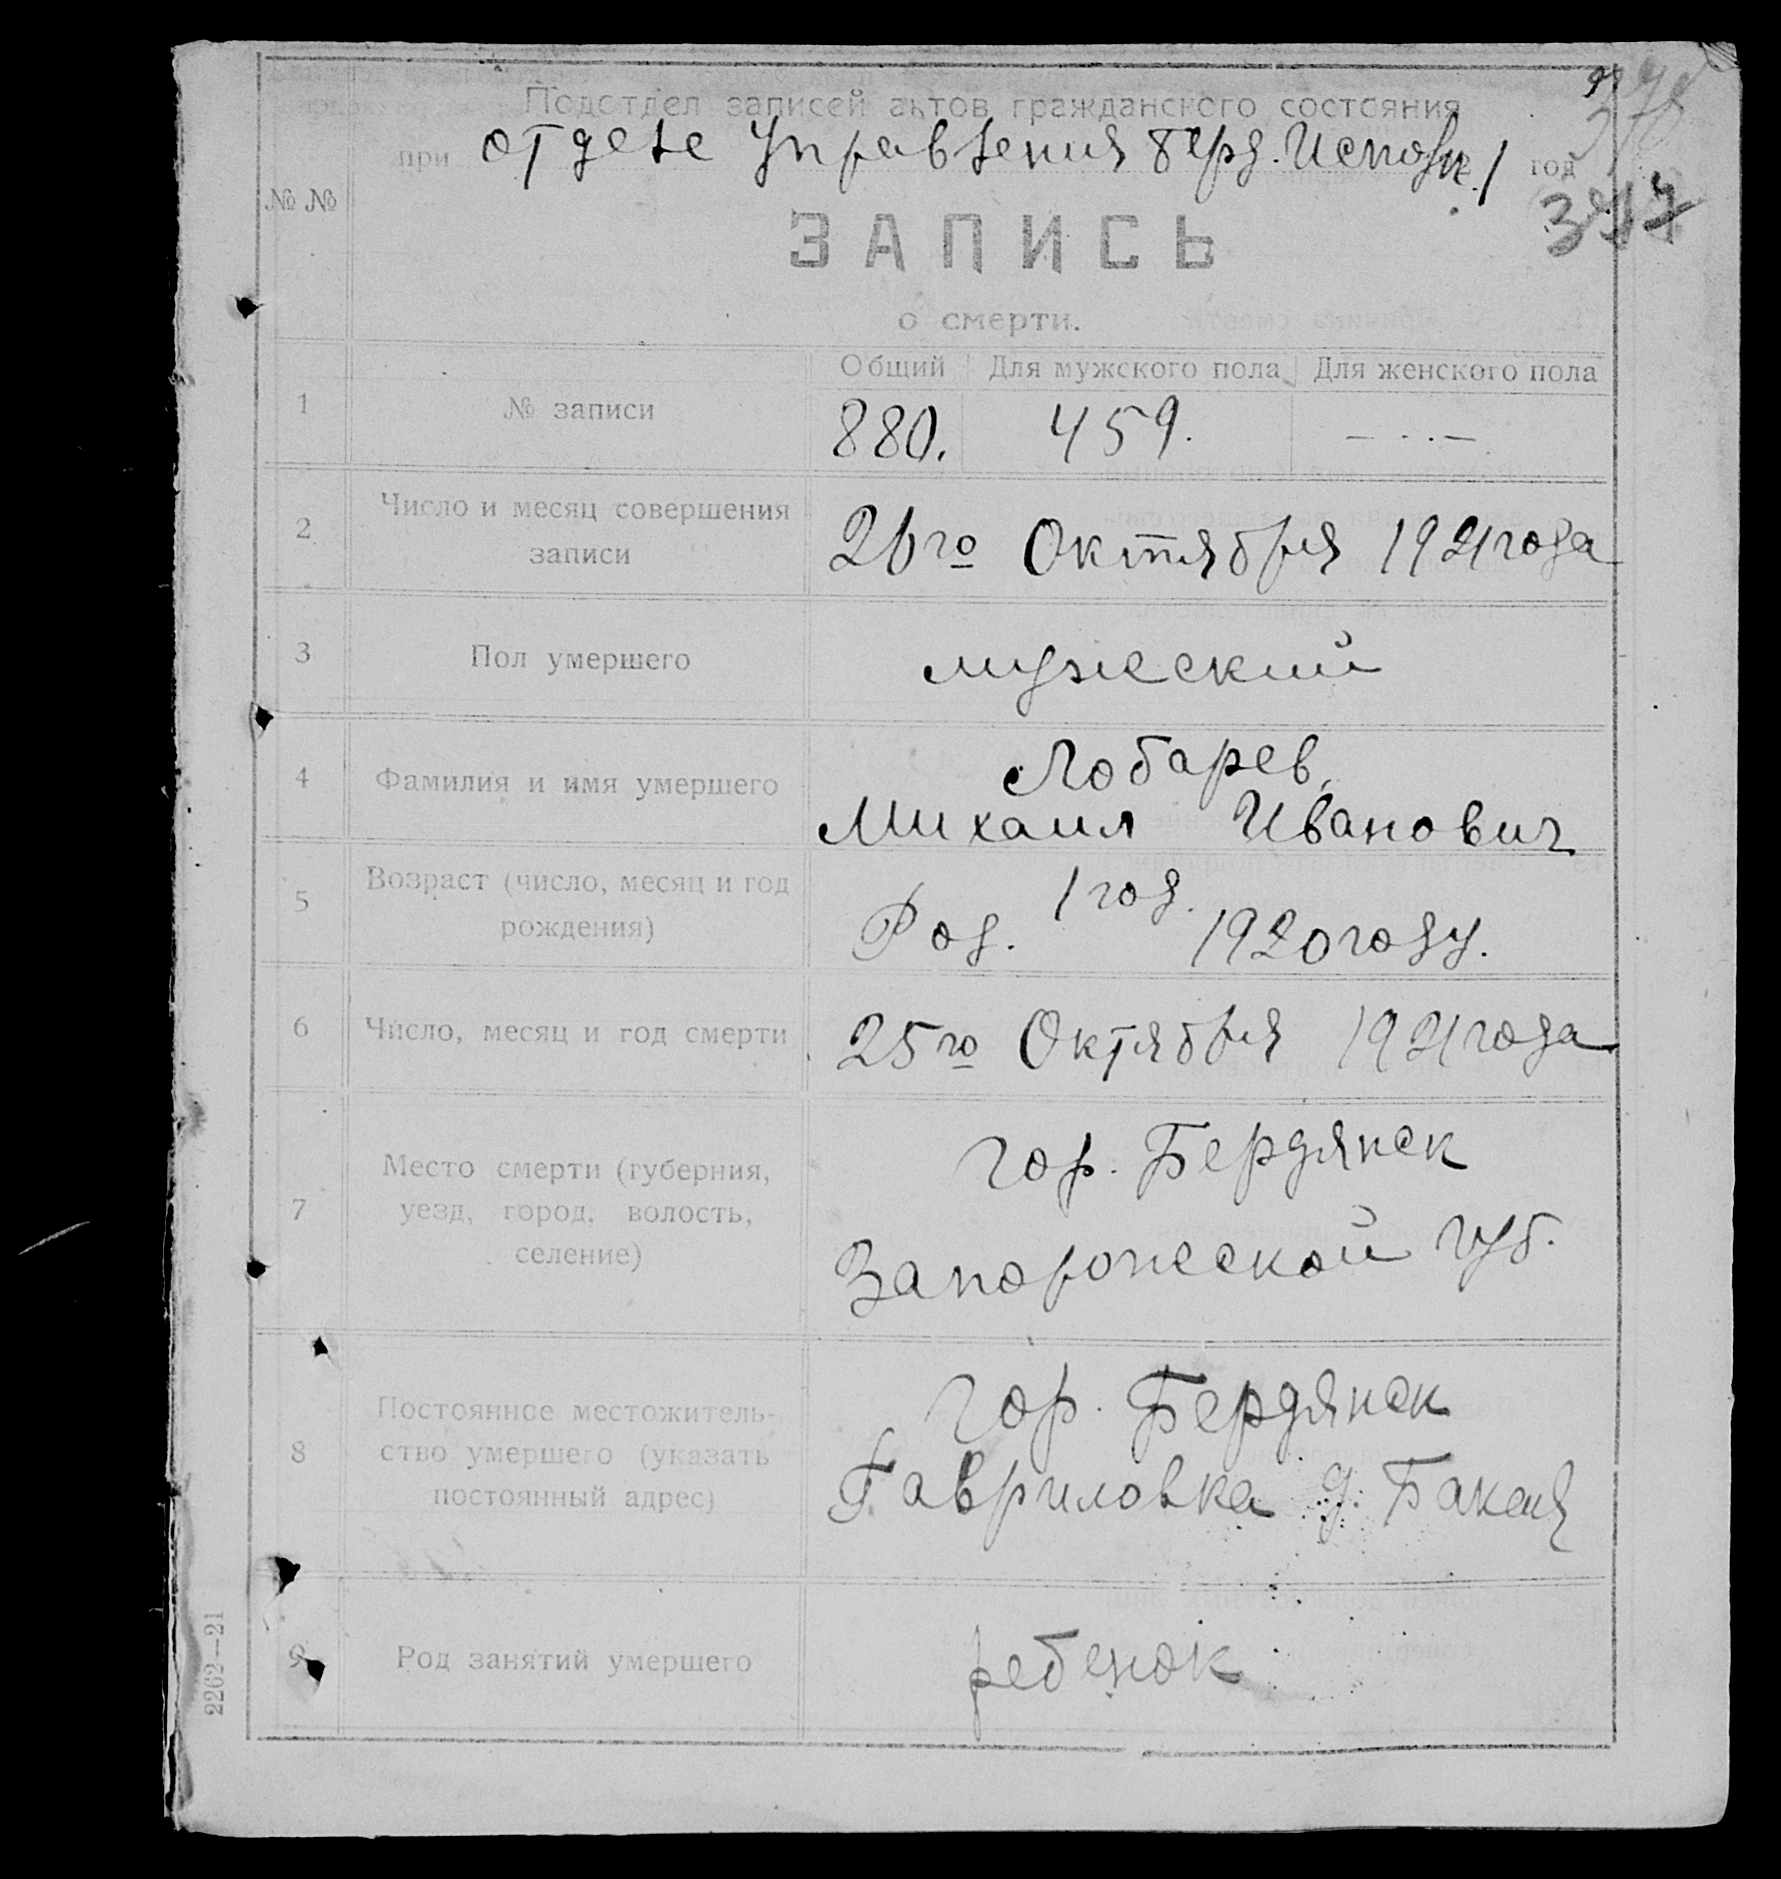 Подотдел записей актов гражданского состояния
при отделе Управления Берд. Исполк. год
377
№ №
ЗАПИСЬ
о смерти.
Общий Для мужского пола Для женского пола
1 № записи 880. 459. — · · —
2 Число и месяц совершения
записи 26го Октября 1921 года
3 Пол умершего мужеский
4 Фамилия и имя умершего Лобарев,
Михаил Иванович
5 Возраст (число, месяц и год
рождения) 1 год.
Род. 1920 году.
6 Число, месяц и год смерти 25го Октября 1921 года
7 Место смерти (губерния,
уезд, город, волость,
селение)
гор. Бердянск
Запорожской губ.
8 Постоянное местожитель-
ство умершего (указать
постоянный адрес)
гор. Бердянск
Гавриловка д.
9 Род занятий умершего ребенок
2262—21